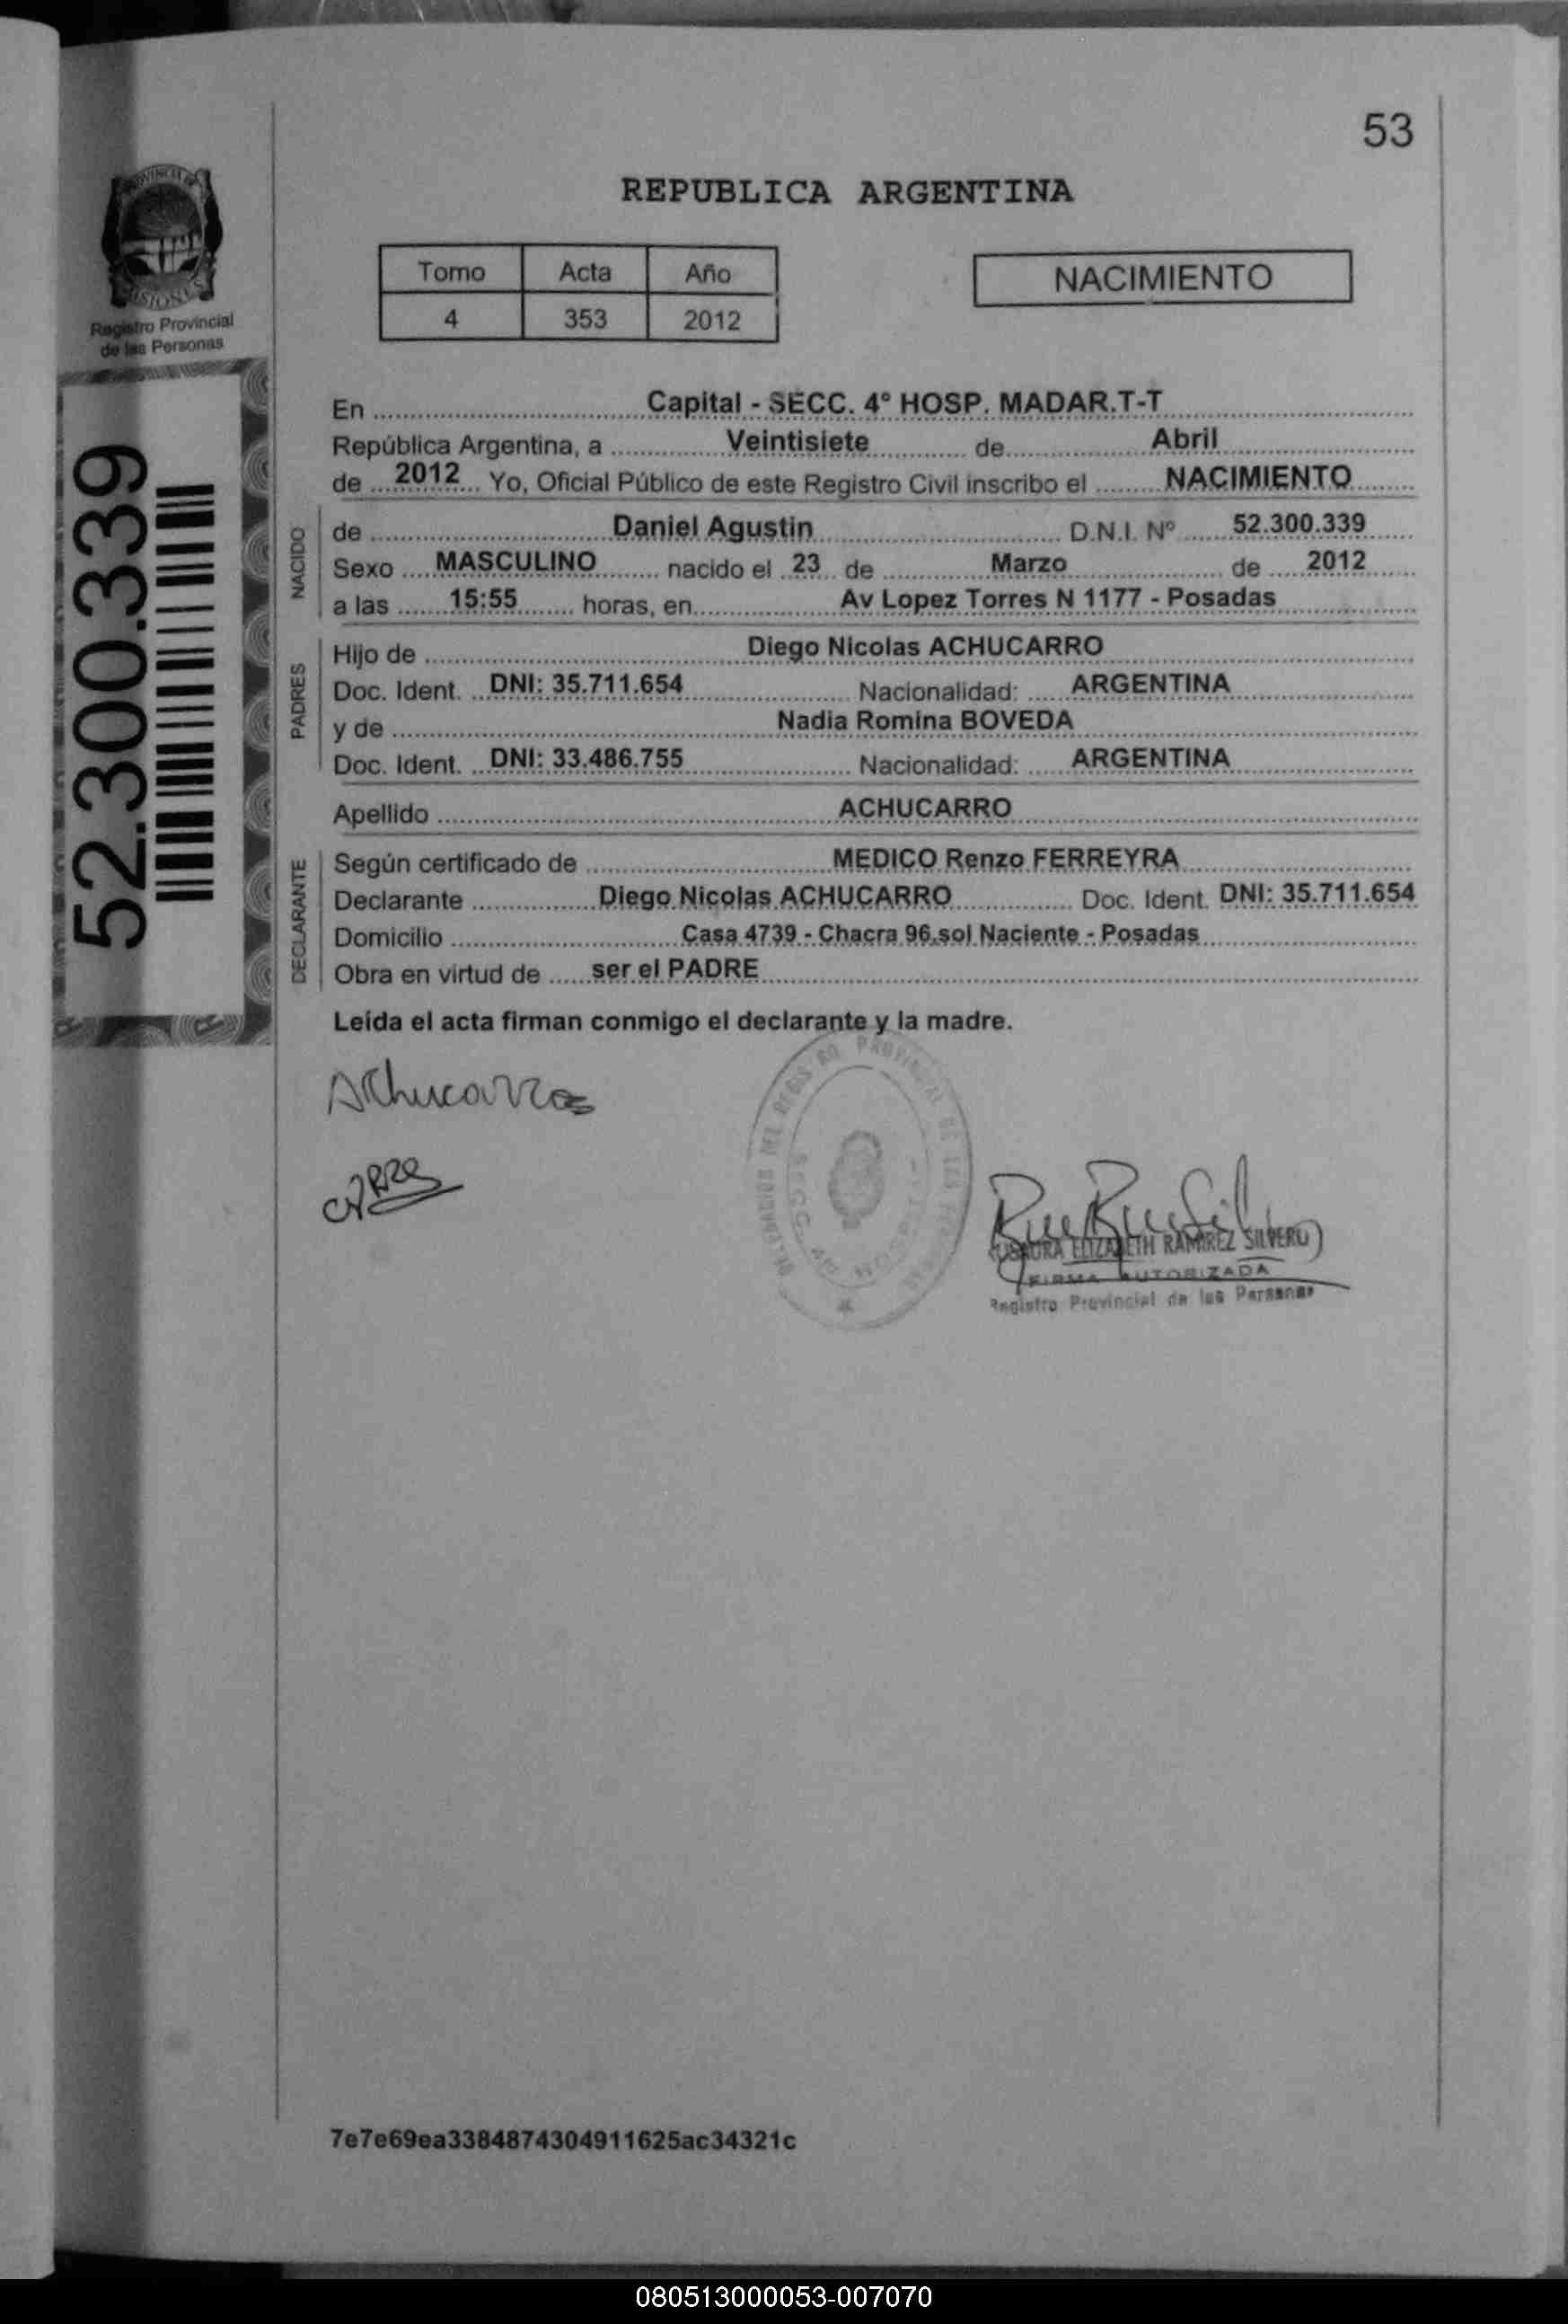 53
PROVINCIA DE
MISIONES
Registro Provincial
de las Personas
52.300.339
REPUBLICA ARGENTINA
Tomo Acta Año
4 353 2012
NACIMIENTO
En Capital - SECC. 4° HOSP. MADAR.T-T
República Argentina, a Veintisiete de Abril
de 2012 Yo, Oficial Público de este Registro Civil inscribo el NACIMIENTO
NACIDO
de Daniel Agustin D.N.I. Nº 52.300.339
Sexo MASCULINO nacido el 23 de Marzo de 2012
a las 15:55 horas, en Av Lopez Torres N 1177 - Posadas
PADRES
Hijo de Diego Nicolas ACHUCARRO
Doc. Ident. DNI: 35.711.654 Nacionalidad: ARGENTINA
y de Nadia Romina BOVEDA
Doc. Ident. DNI: 33.486.755 Nacionalidad: ARGENTINA
Apellido ACHUCARRO
DECLARANTE
Según certificado de MEDICO Renzo FERREYRA
Declarante Diego Nicolas ACHUCARRO Doc. Ident. DNI: 35.711.654
Domicilio Casa 4739 - Chacra 96,sol Naciente - Posadas
Obra en virtud de ser el PADRE
Leída el acta firman conmigo el declarante y la madre.
Achucarro
DELEGACION DEL REGISTRO PROVINCIAL DE LAS PERSONAS
SECC. 4ª
ELIZABETH RAMIREZ SILVERO
FIRMA AUTORIZADA
Registro Provincial de las Personas
7e7e69ea3384874304911625ac34321c
080513000053-007070